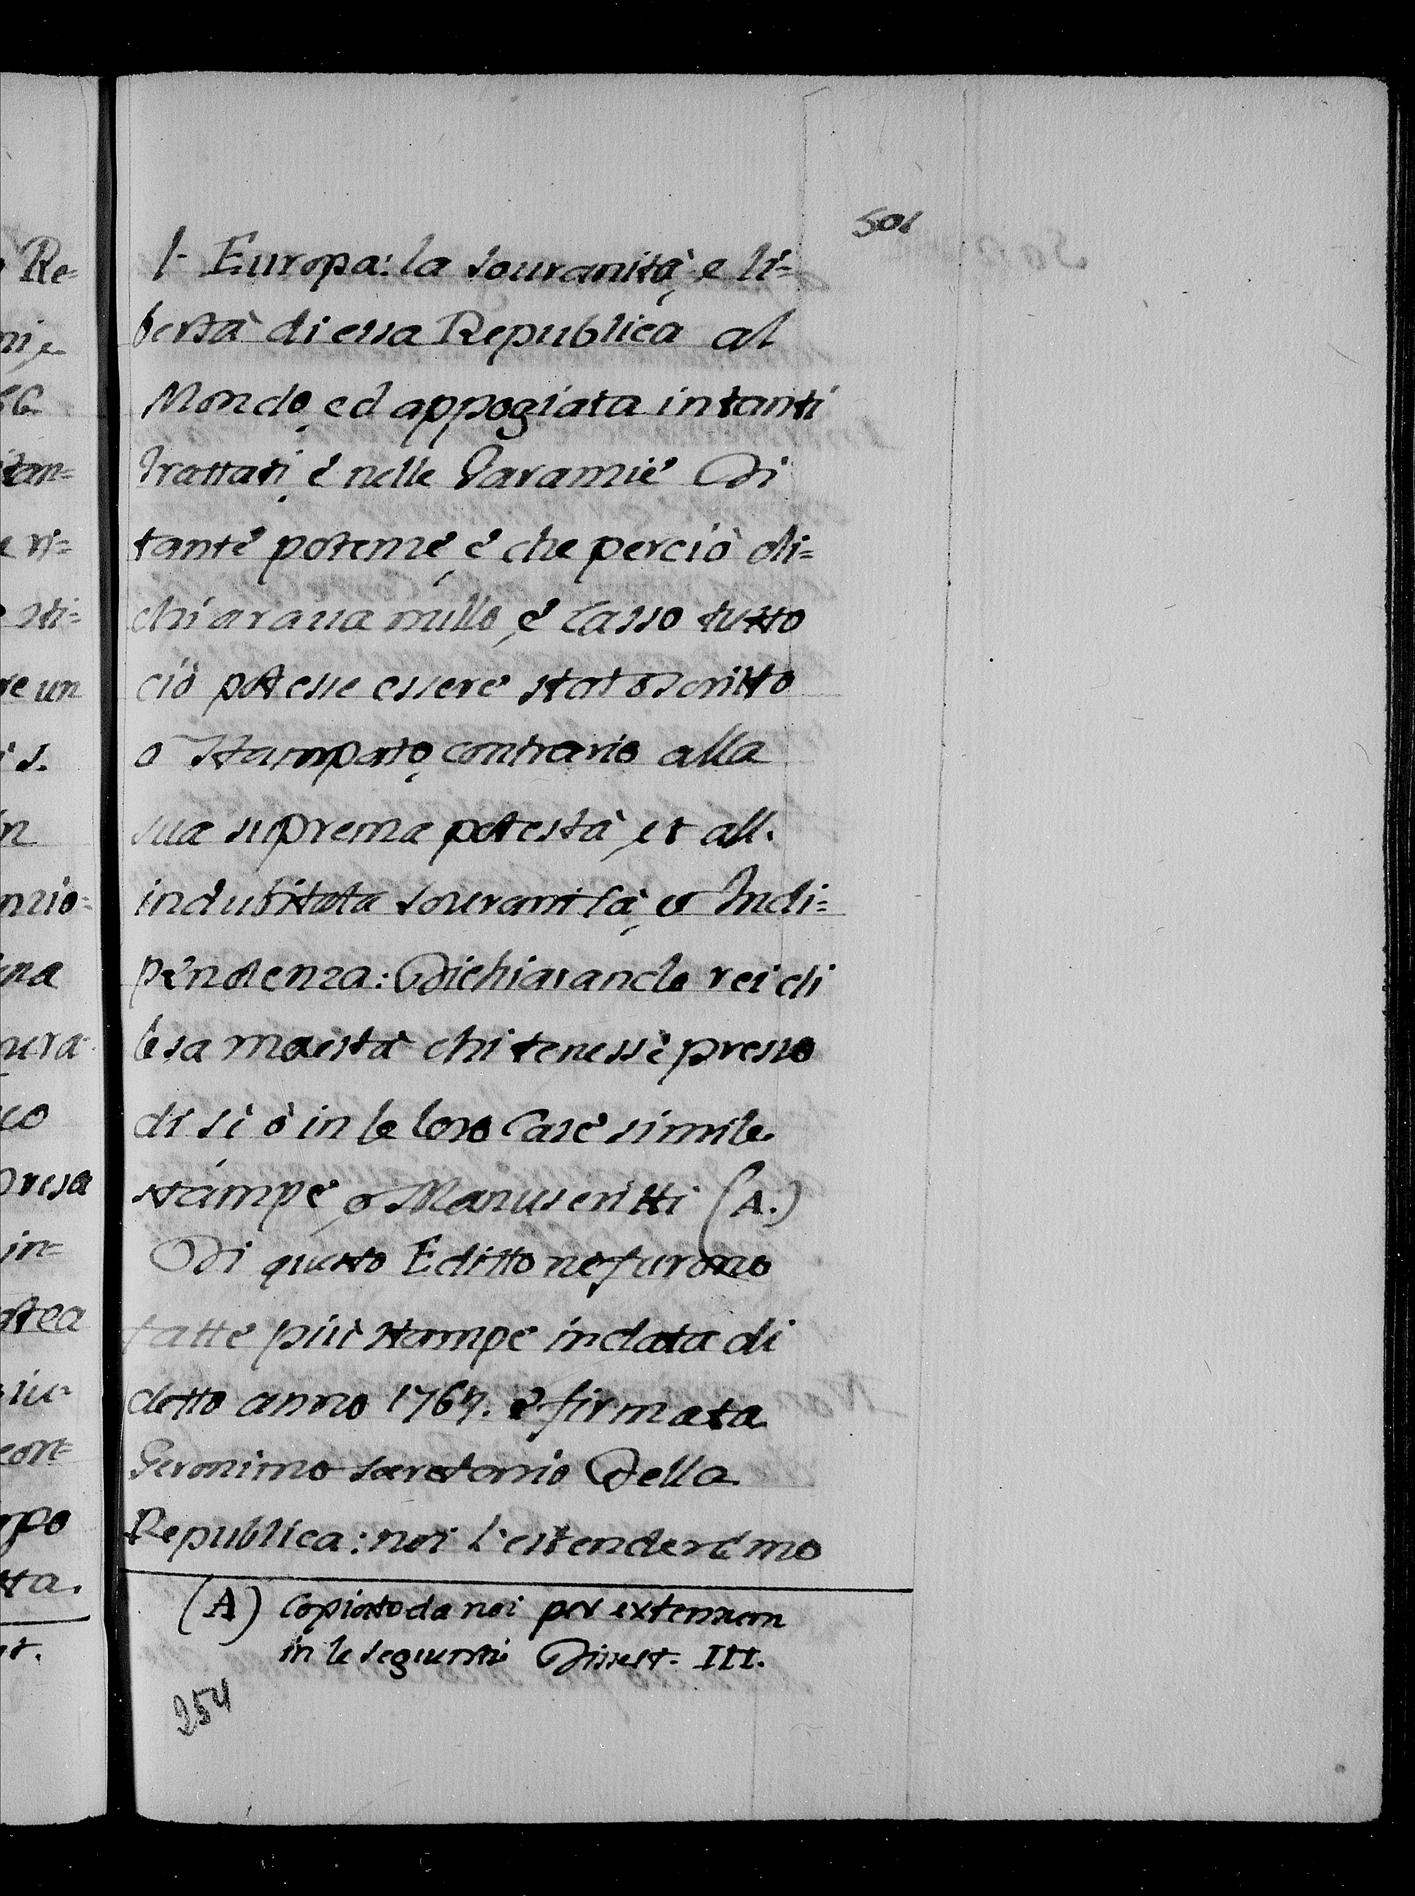 501
l- Europa: la souranità, e li=
bertà di essa Republica al
Mondo, ed appogiata in tanti
trattati, è nelle Garanzie Di
tante potenze, è che perciò di=
chiaraua nullo, è Casso tutto
ciò potesse essere stato scritto
o Stampato, contrario alla
sua suprema potestà, et all.
indubitata souranità, o Indi=
pendenza: Dichiarando rei di
lesa maestà chi tenesse presso
di sè ò in le loro Case simile.
stampe o Manuscritti (A.)
Di questo Editto ne furono
fatte più stampe in data di
detto anno 1767. è firmata
Geronimo secretario Della
Republica: noi l'estenderemo
(A) Copiato da noi per extensum
in le seguenti Dissert. III.
254